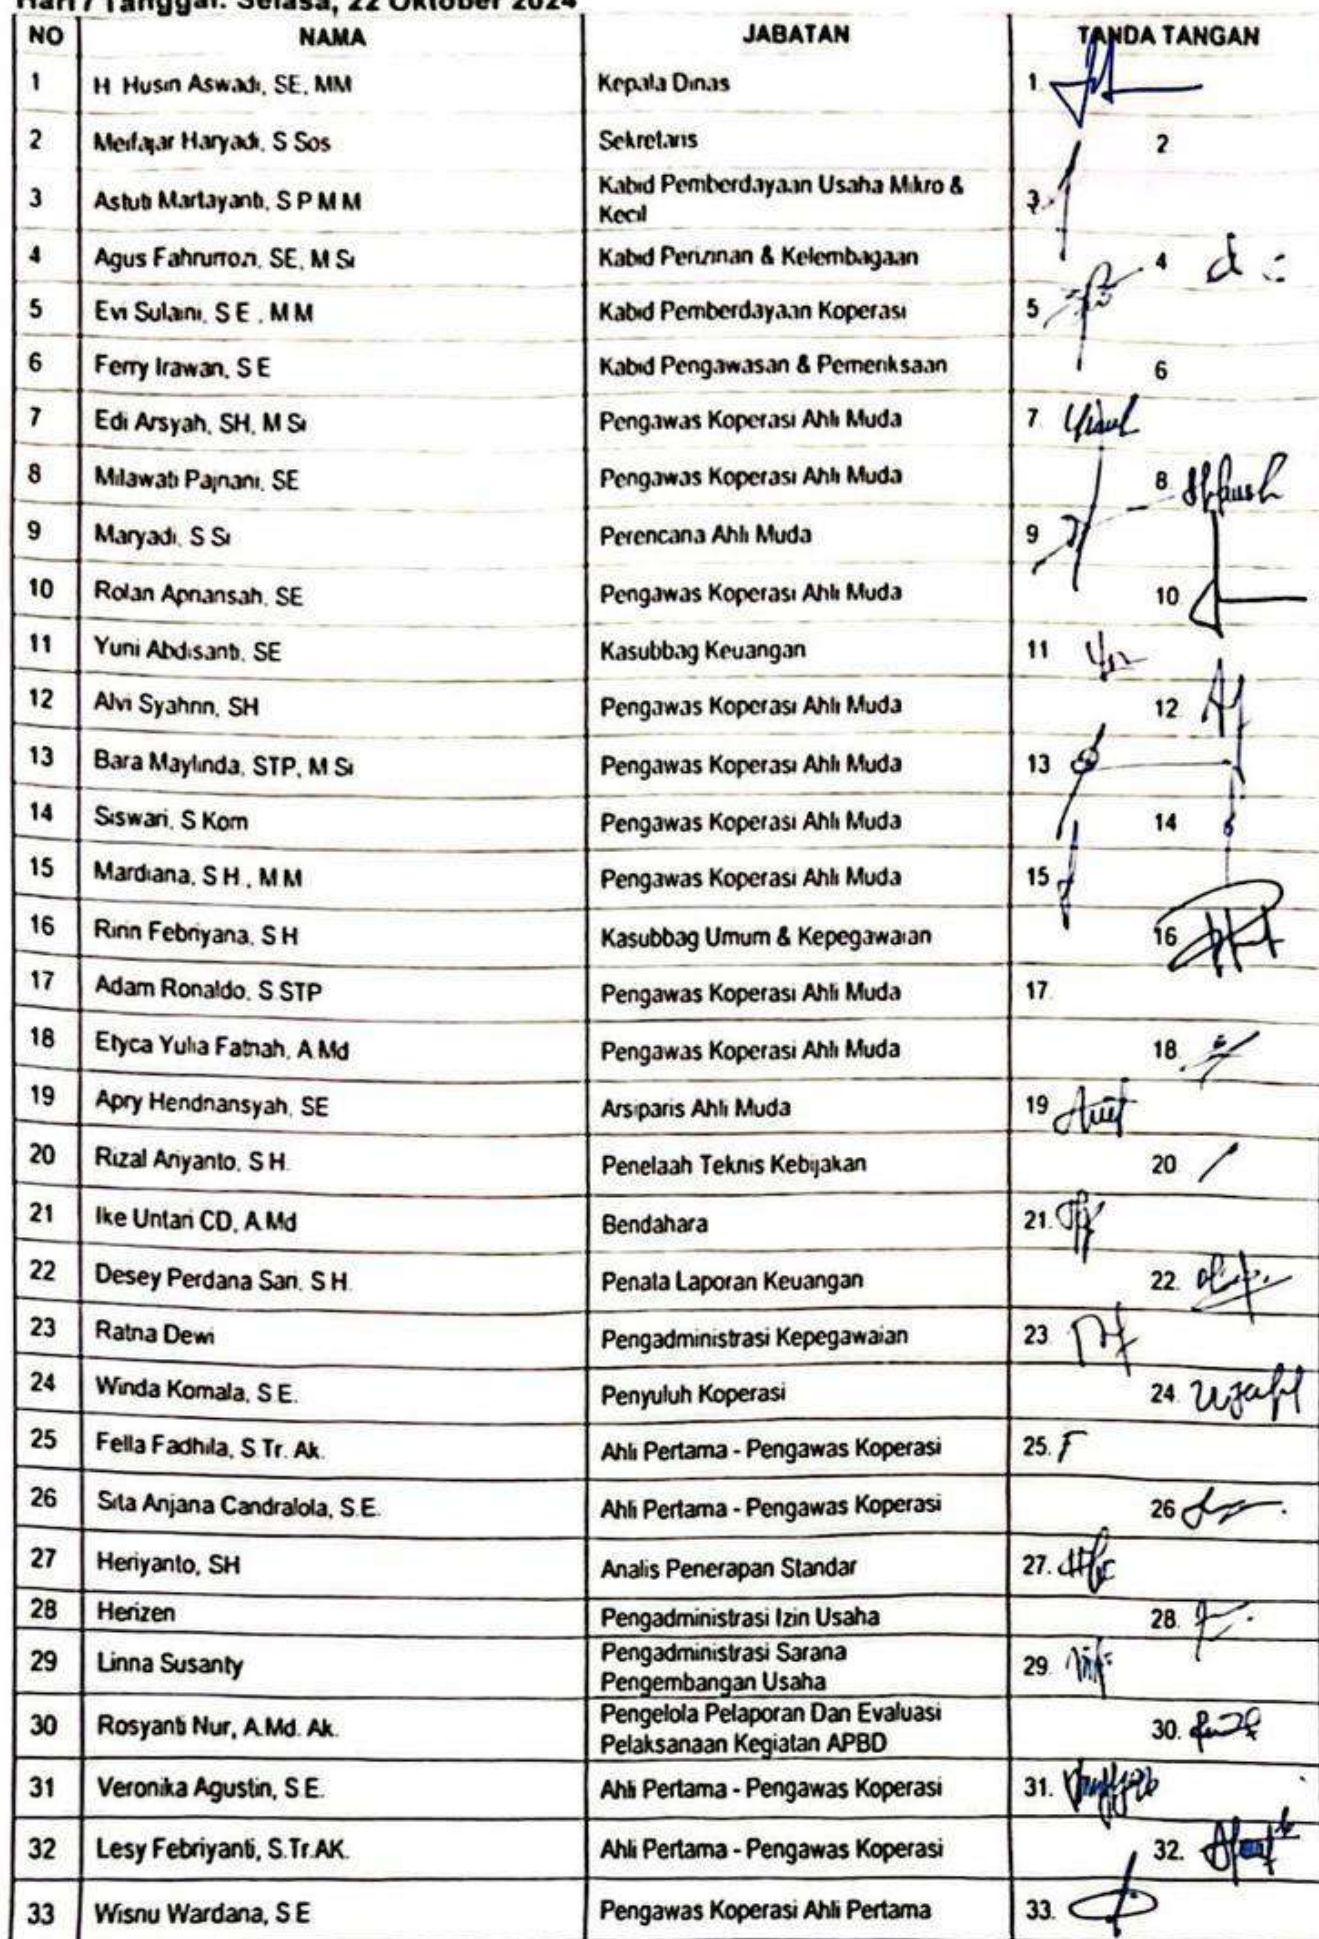 Hari / Tanggal: Selasa, 22 Oktober 2024
NO NAMA JABATAN TANDA TANGAN
1 H Husin Aswadi, SE, MM Kepala Dinas 1.
2 Meifajar Haryadi, S Sos Sekretaris 2
3 Astuti Martayanti, S P M M Kabid Pemberdayaan Usaha Mikro & 3.
Kecil
4 Agus Fahrurrozi, SE, M Si Kabid Perizinan & Kelembagaan 4
5 Evi Sulaini, S E , M M Kabid Pemberdayaan Koperasi 5
6 Ferry Irawan, S E Kabid Pengawasan & Pemeriksaan 6
7 Edi Arsyah, SH, M Si Pengawas Koperasi Ahli Muda 7.
8 Milawati Pajriani, SE Pengawas Koperasi Ahli Muda 8
9 Maryadi, S Si Perencana Ahli Muda 9
10 Rolan Apriansah, SE Pengawas Koperasi Ahli Muda 10
11 Yuni Abdisanti, SE Kasubbag Keuangan 11
12 Alvi Syahrin, SH Pengawas Koperasi Ahli Muda 12
13 Bara Maylinda, STP, M Si Pengawas Koperasi Ahli Muda 13
14 Siswari, S Kom Pengawas Koperasi Ahli Muda 14
15 Mardiana, S H , M M Pengawas Koperasi Ahli Muda 15
16 Ririn Febriyana, S H Kasubbag Umum & Kepegawaian 16
17 Adam Ronaldo, S.STP Pengawas Koperasi Ahli Muda 17.
18 Etyca Yulia Fatriah, A Md Pengawas Koperasi Ahli Muda 18.
19 Apry Hendriansyah, SE Arsiparis Ahli Muda 19
20 Rizal Ariyanto, S H. Penelaah Teknis Kebijakan 20
21 Ike Untari CD, A.Md Bendahara 21.
22 Desey Perdana Sari, S H. Penata Laporan Keuangan 22.
23 Ratna Dewi Pengadministrasi Kepegawaian 23
24 Winda Komala, S E. Penyuluh Koperasi 24.
25 Fella Fadhila, S.Tr. Ak. Ahli Pertama - Pengawas Koperasi 25.
26 Sita Anjana Candralola, S.E. Ahli Pertama - Pengawas Koperasi 26
27 Heriyanto, SH Analis Penerapan Standar 27.
28 Herizen Pengadministrasi Izin Usaha 28.
29 Linna Susanty Pengadministrasi Sarana 29.
Pengembangan Usaha
30 Rosyanti Nur, A.Md. Ak. Pengelola Pelaporan Dan Evaluasi 30.
Pelaksanaan Kegiatan APBD
31 Veronika Agustin, S.E. Ahli Pertama - Pengawas Koperasi 31.
32 Lesy Febriyanti, S.Tr.AK. Ahli Pertama - Pengawas Koperasi 32.
33 Wisnu Wardana, S E Pengawas Koperasi Ahli Pertama 33.